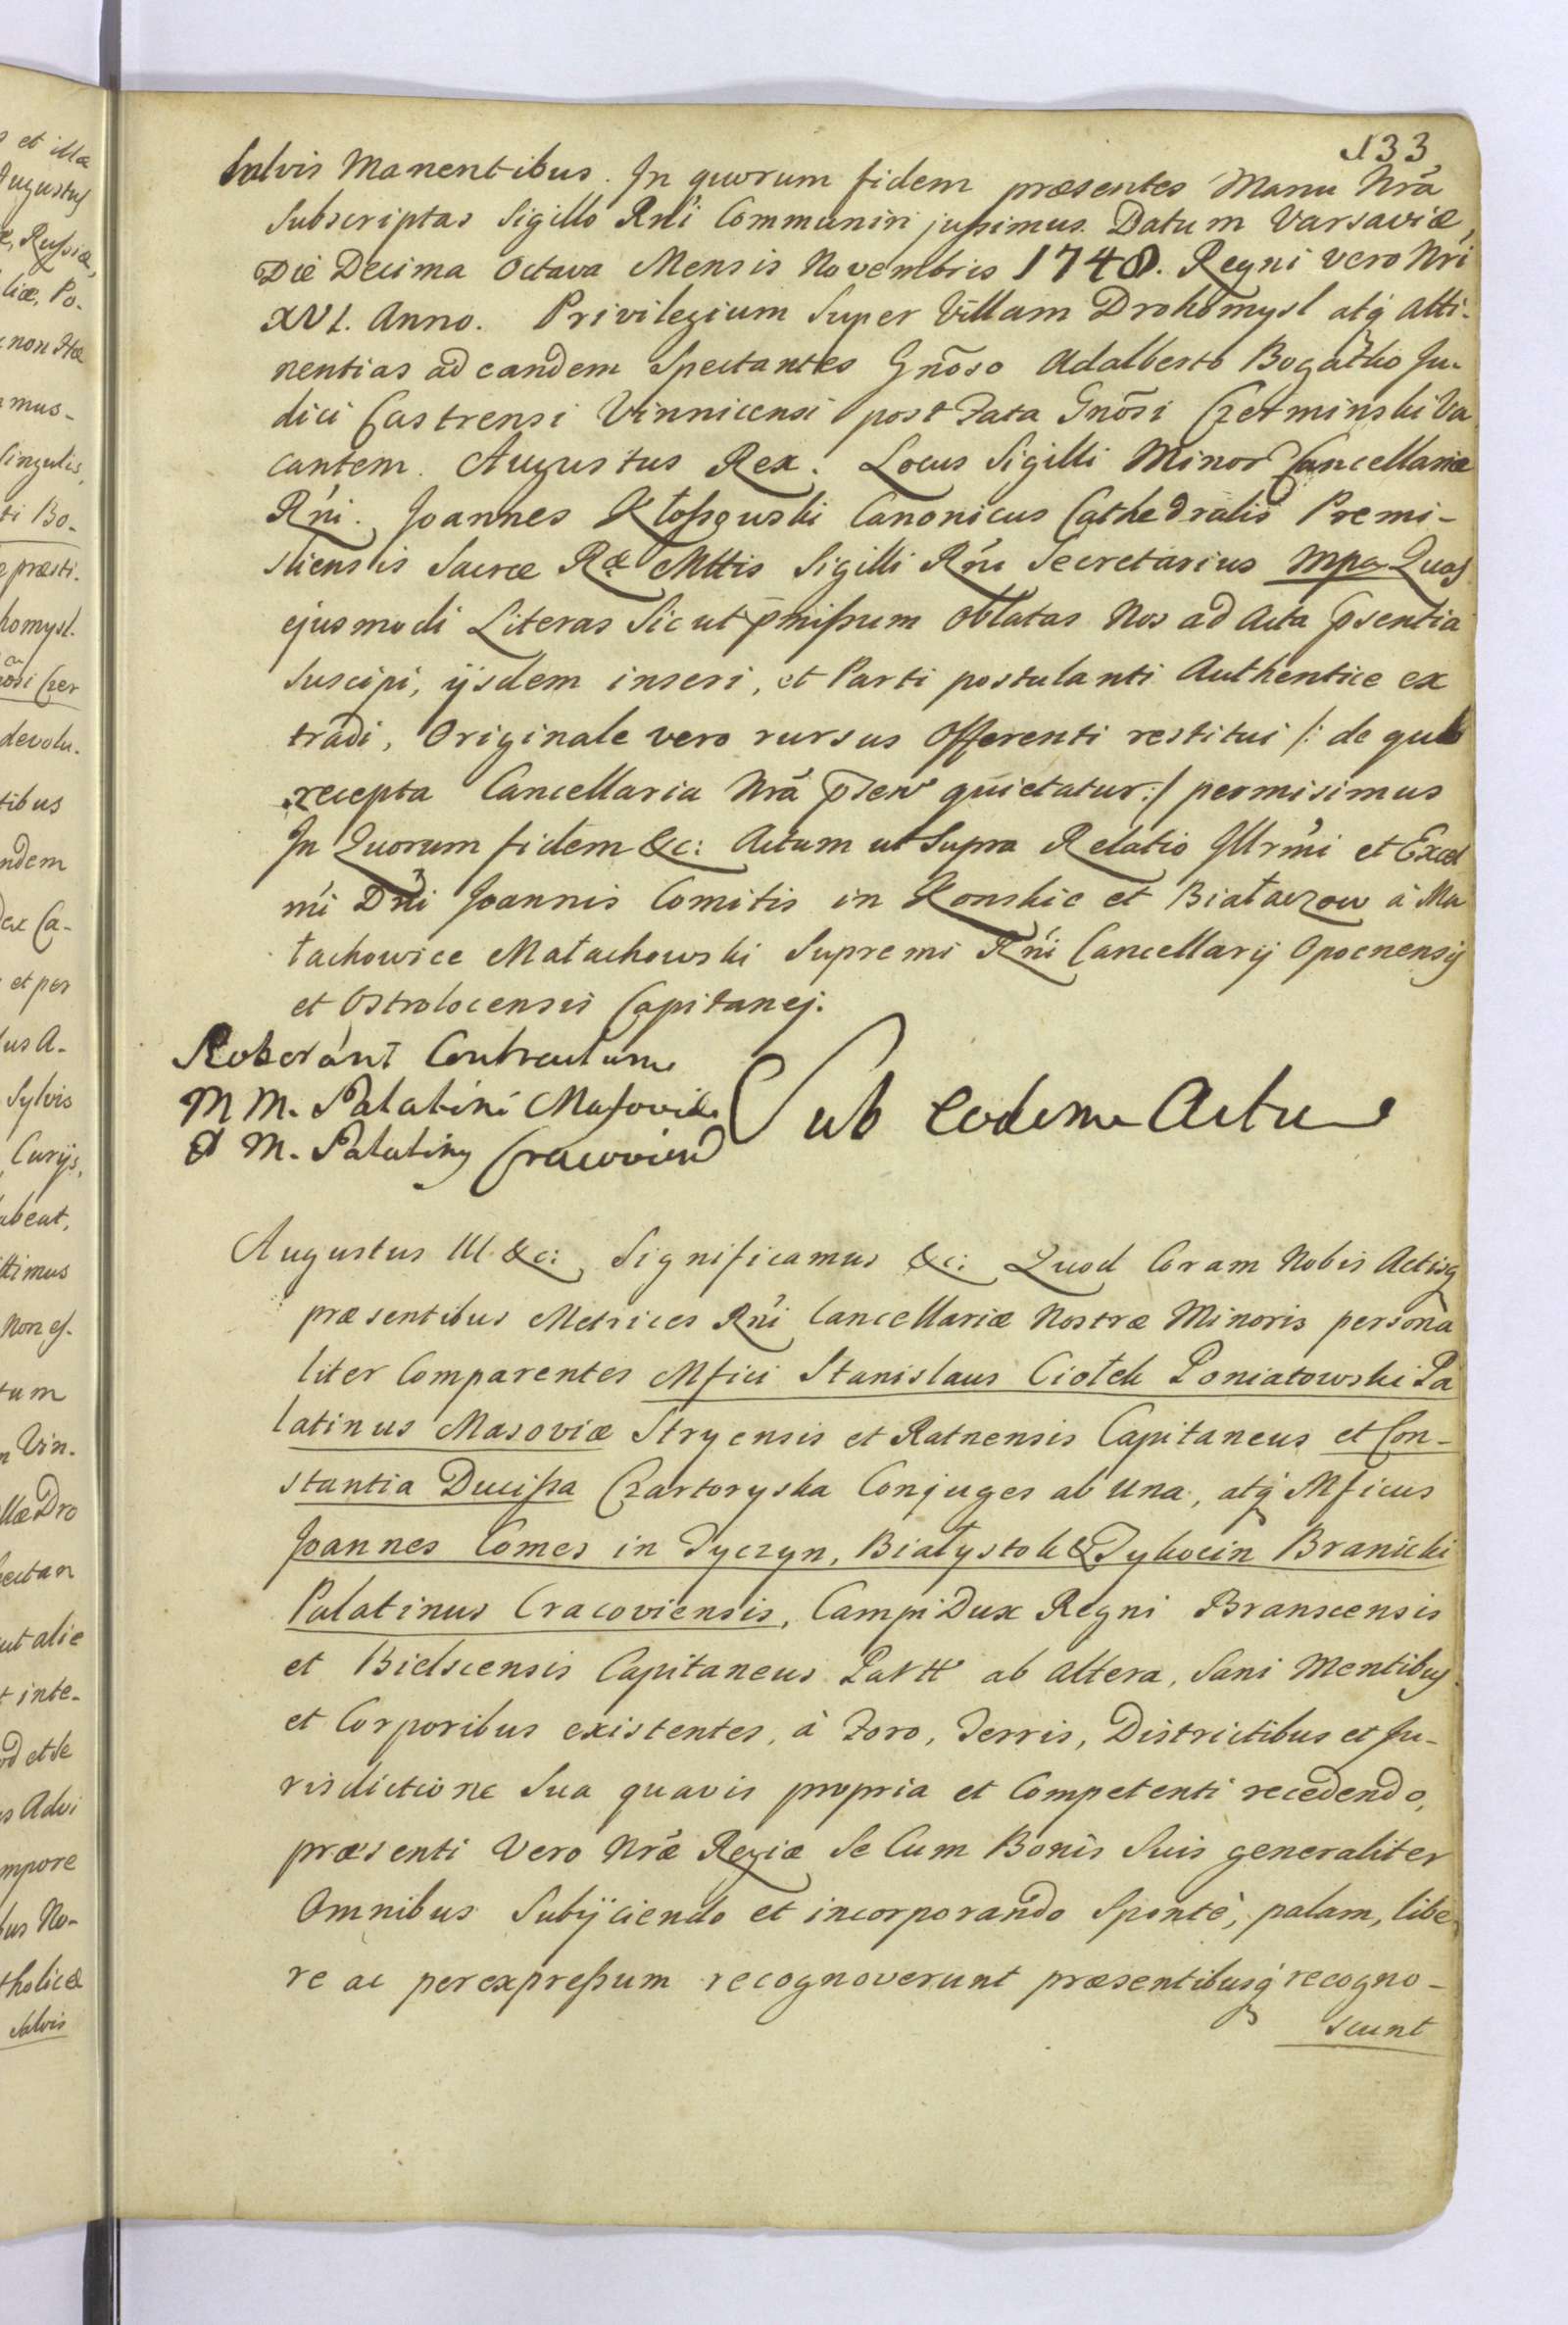 133
Salvis Manentibus. In quorum fidem præsentes Manu Nrã
Subscriptas Sigillo Rńi Communiri jussimus. Datum Varsaviæ,
Die Decima Octava Mensis Novembris 1748. Regni vero Nri
XVI. Anno. Privilegium Super Villam Drohomysl atq́ atti-
nentias ad eandem Spectantes Gnõso Adalberto Bogatko Ju-
dici Castrensi Vinnicensi post Fata Gnõsi Czerminski Va
cantem. Augustus Rex. Locus Sigilli Minor Cancellariæ
Rńi. Joannes Kłossowski Canonicus Cathedralis Premi-
sliensis Sacræ Ræ Mttis Sigilli Rńi Secretarius Mpa Quas
ejusmodi Literas Sicut p̄missum Oblatas Nos ad Acta p̄sentia
Suscipi, ijsdem inseri, et Parti postulanti Authentice ex
tradi, Originale vero rursus Offerenti restitui /: de quo
recepto Cancellaria Nrã p̄sen quietatur:/ permisimus
In Quorum fidem &c: Actum ut Supra Relatio Illrm̃i et Excel
mi Dńi Joannis Comitis in Konskie et Białaczow à Ma
łachowice Małachowski Supremi Rńi Cancellarij Opocnensis
et Ostrolocensis Capitanej.
Roborant Contractum
M M. Palatini Masoviæ
& M. Palatiny Cracovien
Sub eodem Actu
Augustus III &c: Significamus &c: Quod Coram Nobis Actisq́
præsentibus Metrices Rńi Cancellariæ Nostræ Minoris persona
liter Comparentes Mfici Stanislaus Ciołek Poniatowski Pa
latinus Masoviæ Stryensis et Ratnensis Capitaneus et Con-
stantia Ducissa Czartoryska Conjuges ab Una, atq́ Mficus
Joannes Comes in Tyczyn, Białystok & Tykocin Branicki
Palatinus Cracoviensis, Campi Dux Regni Branscensis
et Bielscensis Capitaneus Partt ab altera, Sani Mentibus
et Corporibus existentes, à Foro, Terris, Districtibus et Ju-
risdictione Sua quavis propria et Competenti recedendo,
præsenti Vero Nræ Regiæ Se Cum Bonis Suis generaliter
Omnibus Subijciendo et incorporando Spontè, palam, libe
re ac per expressum recognoverunt præsentibusq́ recogno-
scunt